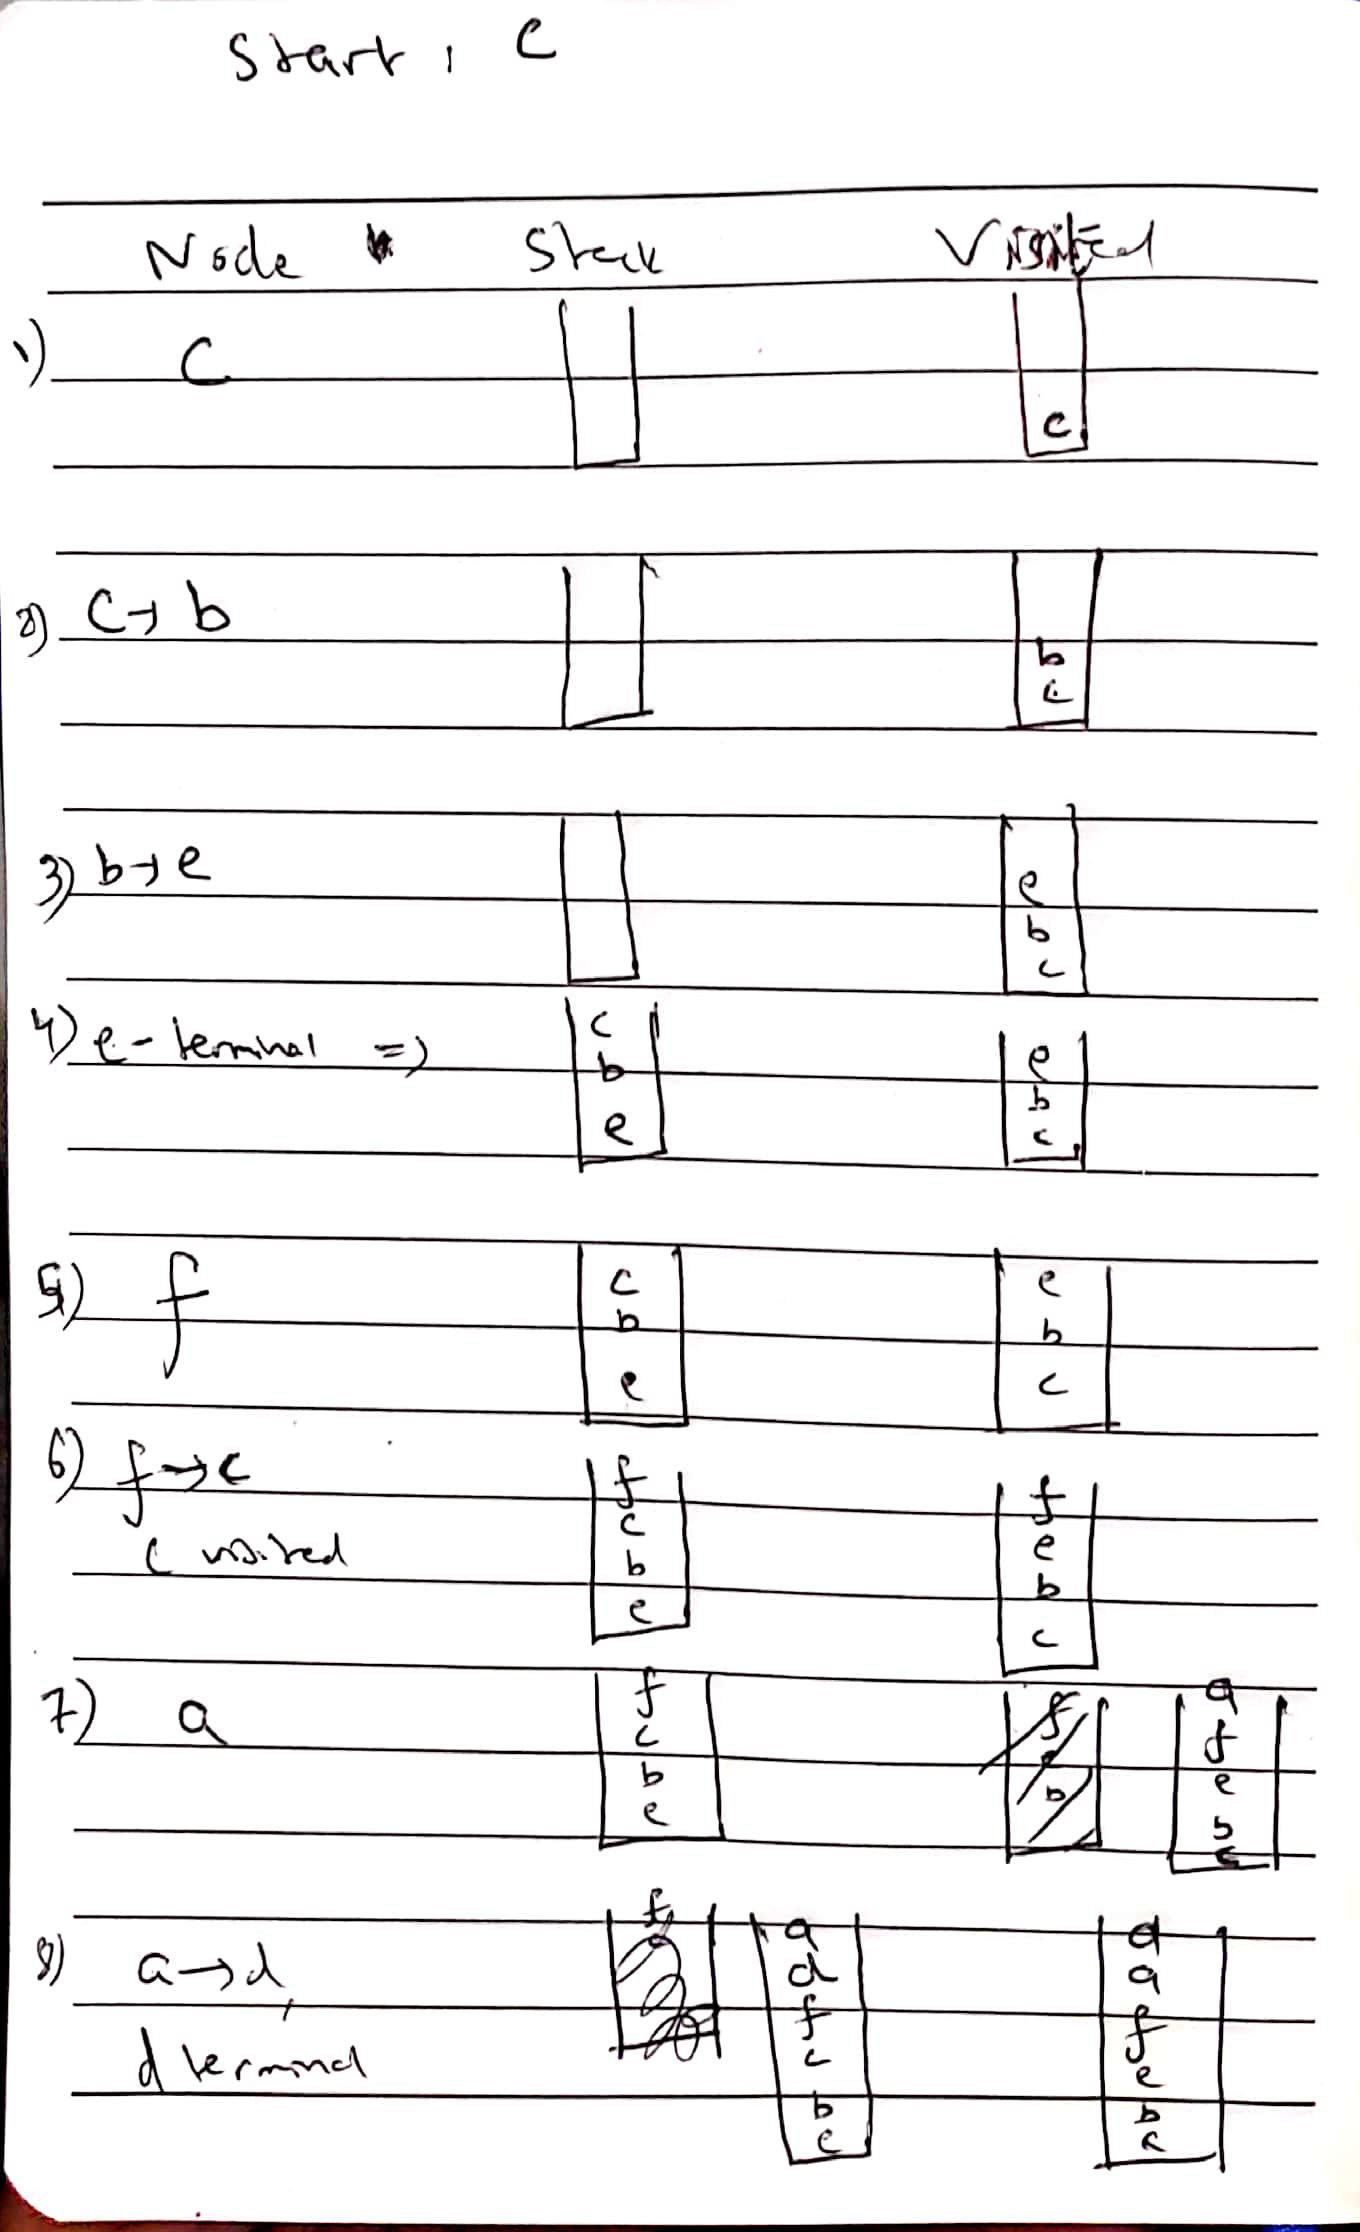 Start : C
Node Stack Visited
1) C
c
2) C → b
b
c
3) b → e
e
b
c
4) e - terminal =>
c
b
e
e
b
c
5) f
c
b
e
e
b
c
6) f → c
c visited
f
c
b
e
f
e
b
c
7) a
f
c
b
e
a
f
e
b
c
8) a → d,
d terminal
a
d
f
c
b
e
d
a
f
e
b
c